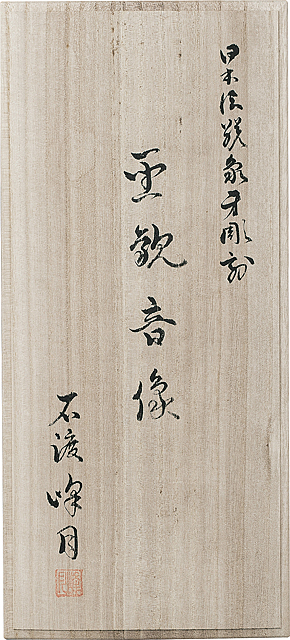 日本伝統象牙彫刻
聖観音像
石渡峰月